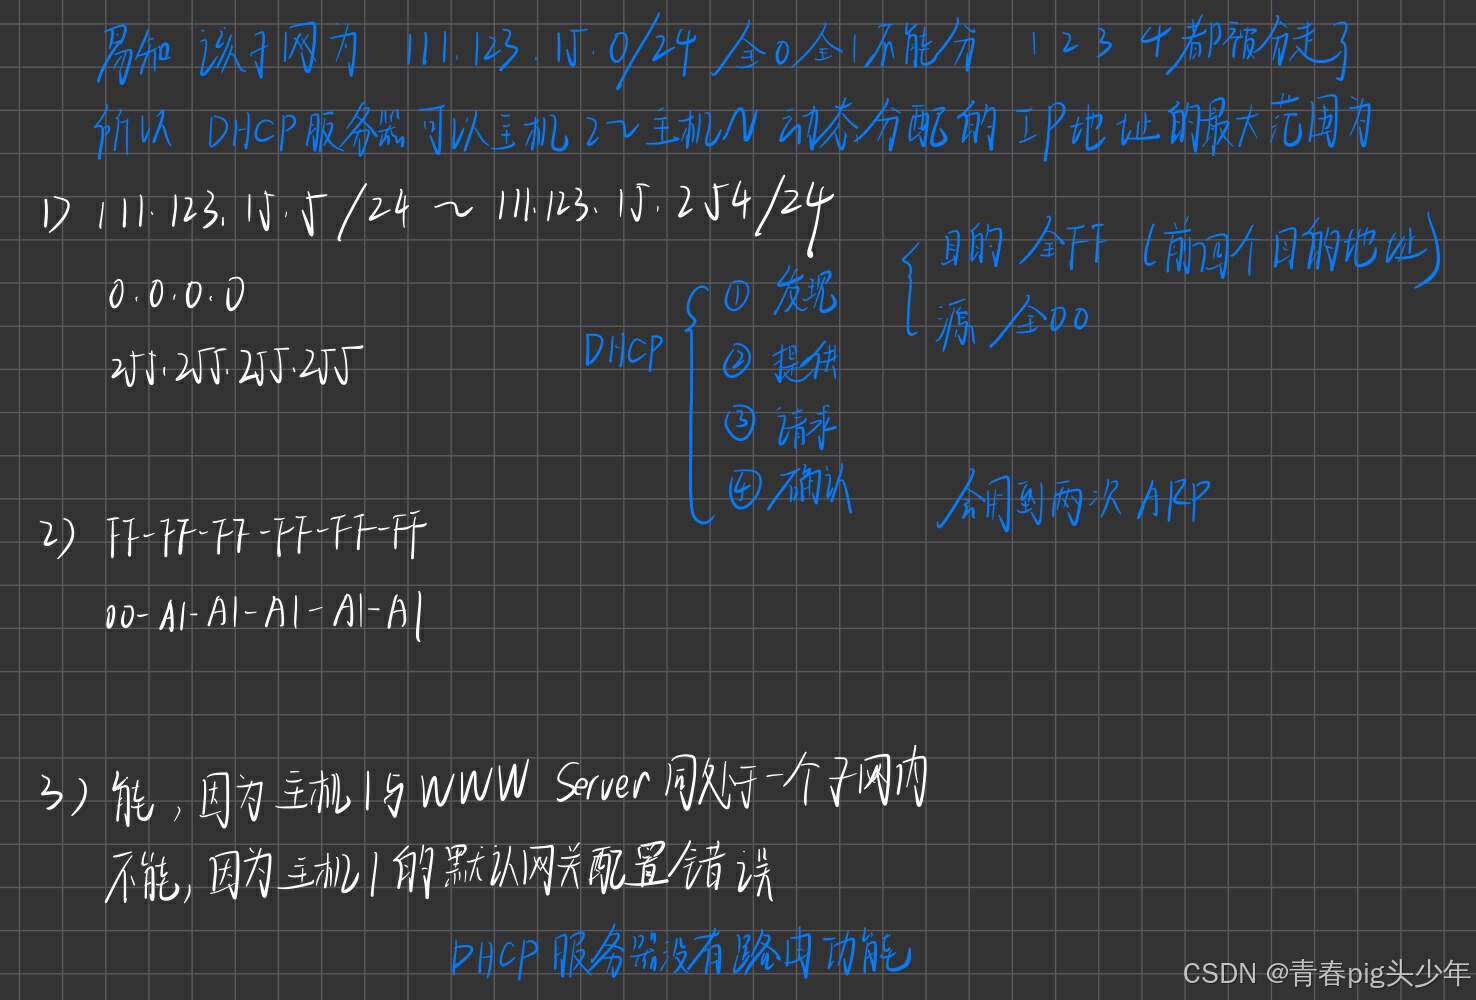 易知 该子网为 111.123.15.0/24 全0全1不能分 1 2 3 4都被分走了
所以 DHCP服务器可以主机2～主机N 动态分配的 IP地址的最大范围为
1) 111.123.15.5/24 ～ 111.123.15.254/24
0.0.0.0
255.255.255.255
DHCP
① 发现
② 提供
③ 请求
④ 确认
目的 全FF (前四个目的地址)
源 全00
会用到两次 ARP
2) FF-FF-FF-FF-FF-FF
00-A1-A1-A1-A1-A1
3) 能,因为主机1与WWW Server同处于一个子网内
不能,因为主机1的默认网关配置错误
DHCP服务器没有路由功能
CSDN @青春pig头少年